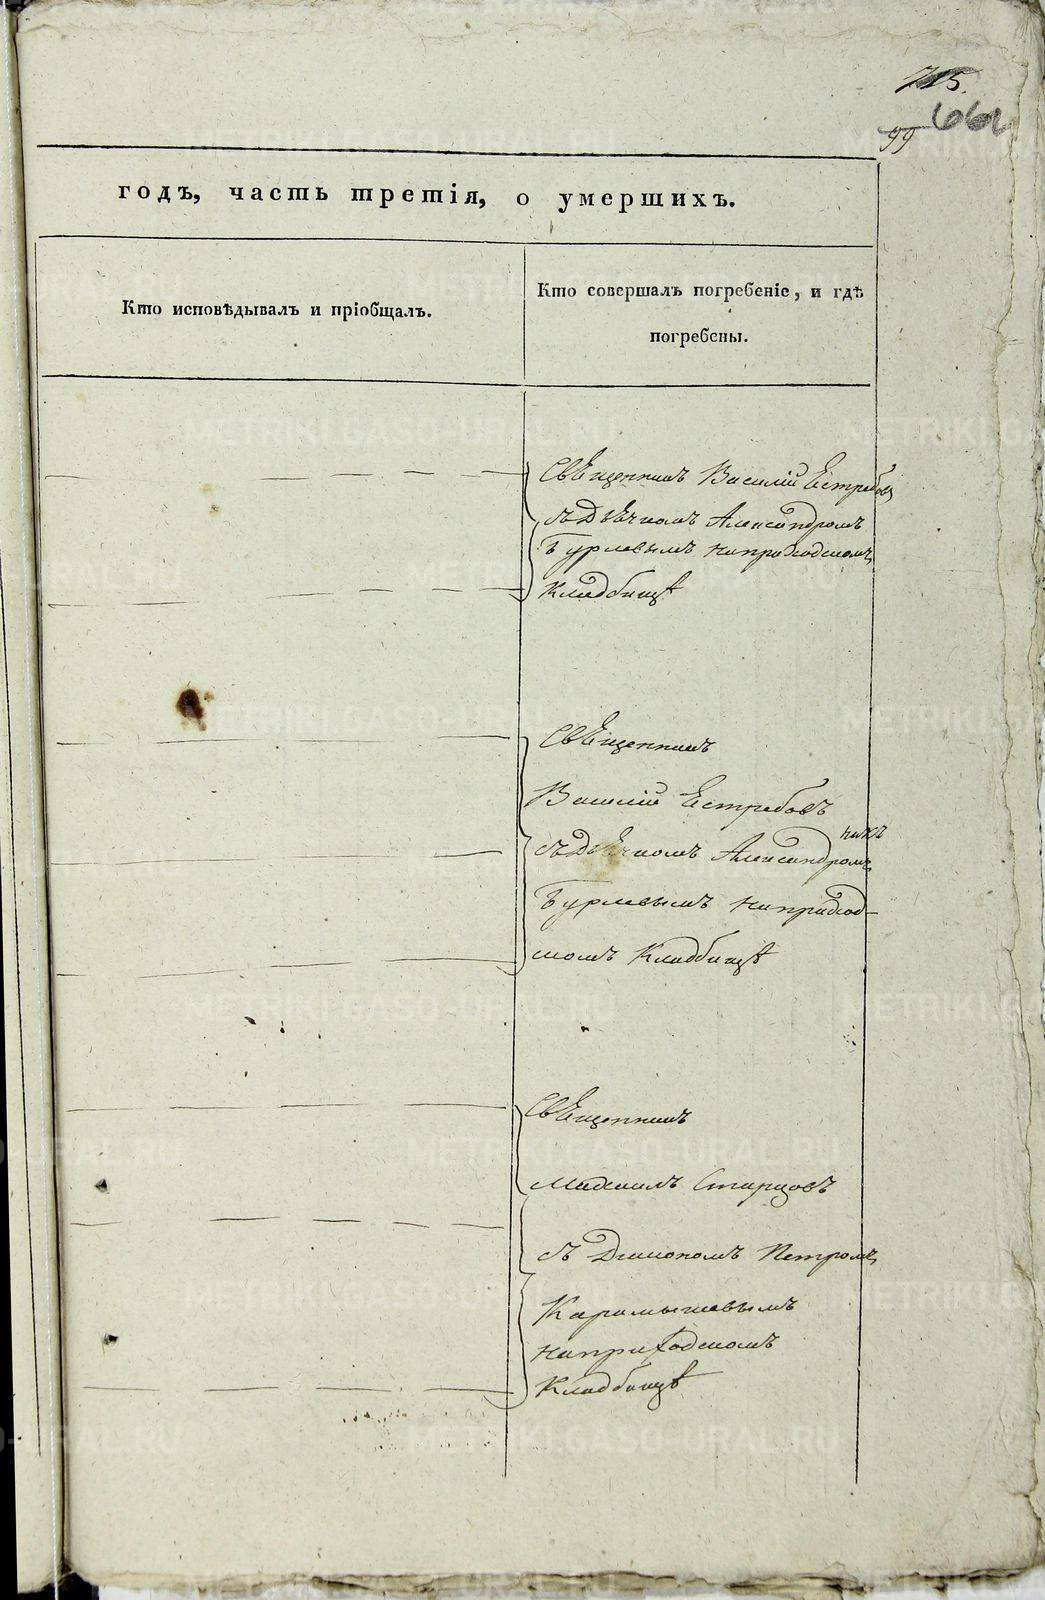 715.
99
годъ, часть третія, о умершихъ.
Кто исповѣдывалъ и пріобщалъ.
Кто совершалъ погребеніе, и гдѣ
погребены.
Священникъ Василій Естребовъ
съ Дьячкомъ Александромъ
Бурлевымъ наприходскомъ
Кладбищѣ
Священникъ
Василій Естребовъ
съ Дьячкомъ Александромъ
Бурлевымъ наприход-
скомъ Кладбищѣ
Священникъ
Михаилъ Старцовъ
съ Дьякономъ Петромъ
Карамышевымъ
наприходскомъ
Кладбищѣ
METRIKI.GASO-URAL.RU